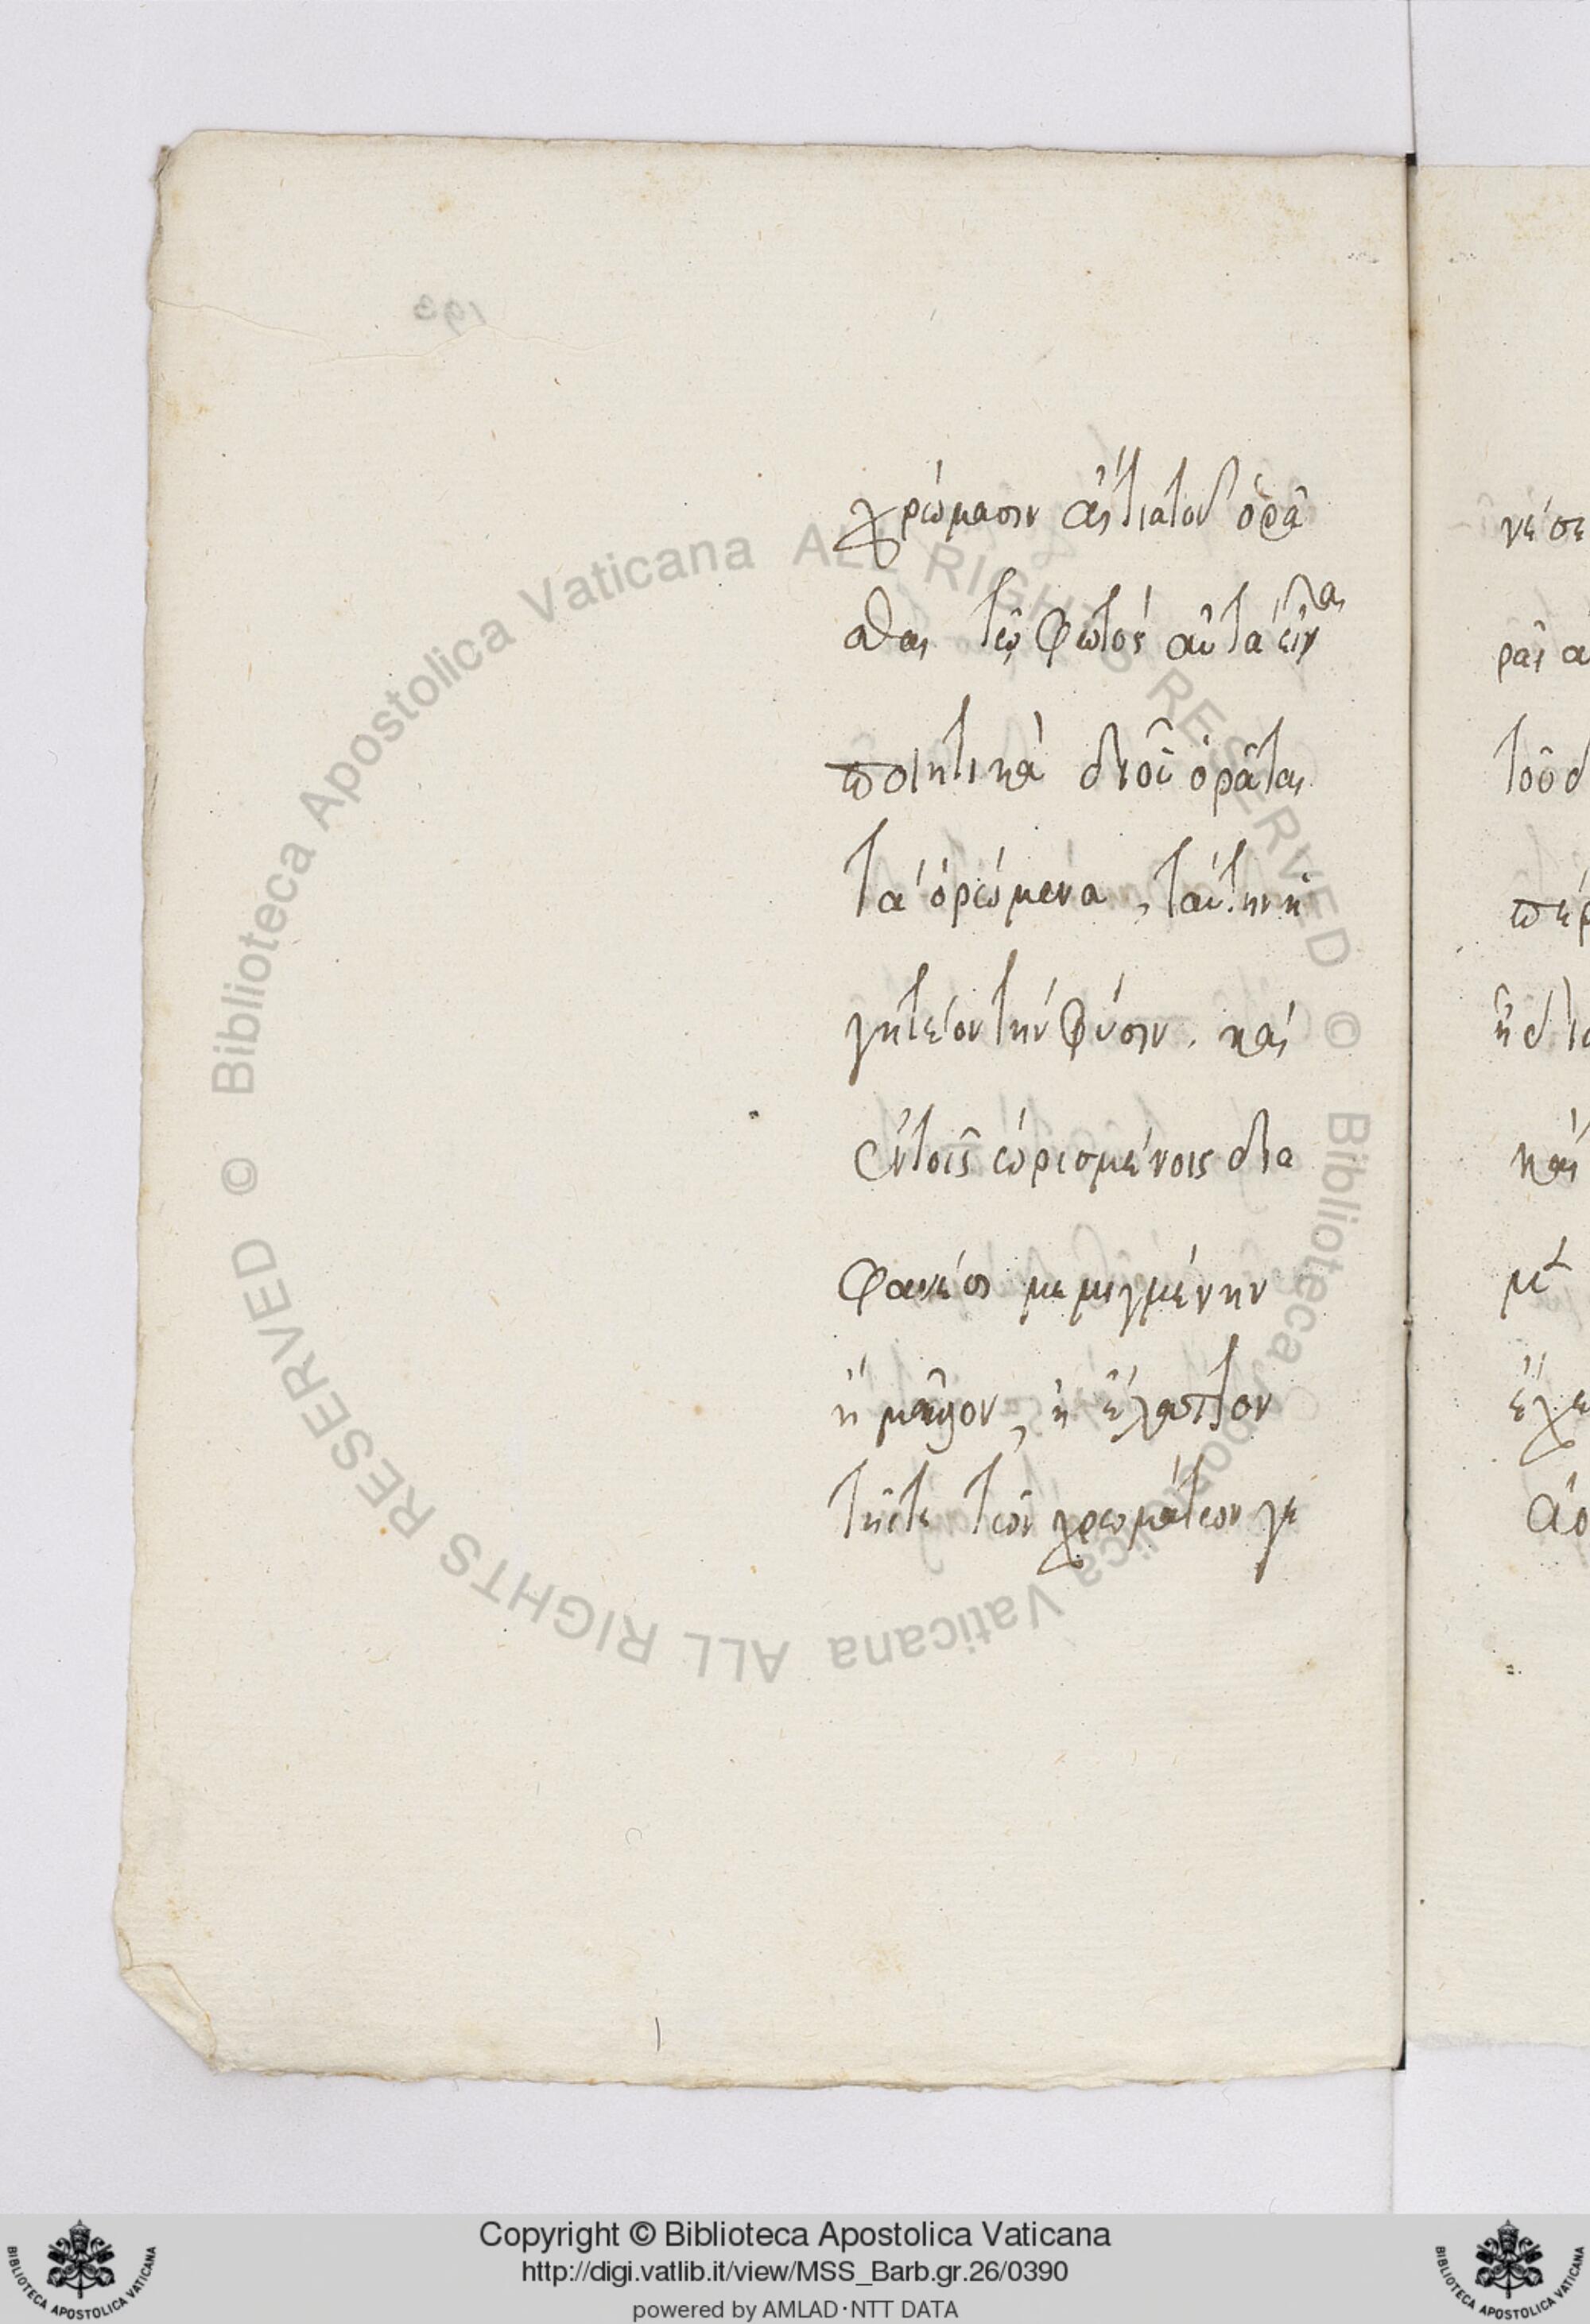 χρώμασιν αἴτια τοῦ ὁρᾶ
σθαι τῷ φωτὸς αὐτὰ εἶναι
ποιητικὰ δι' οὗ ὁρᾶται
τὰ ὁρώμενα, ταύτην ἡ
γητέον τὴν φύσιν. καὶ
ἐν τοῖς ὡρισμένοις δια
φανέσι μεμιγμένην
ἢ μᾶλλον, ἢ ἔλαττον
τῆς τε τῶν χρωμάτων γε
193
νέσε
ρᾶς α
τοῦ δ
περ
καὶ
ἔχε
© Biblioteca Apostolica Vaticana ALL RIGHTS RESERVED © Biblioteca Apostolica Vaticana ALL RIGHTS RESERVED
Copyright © Biblioteca Apostolica Vaticana
http://digi.vatlib.it/view/MSS_Barb.gr.26/0390
powered by AMLAD·NTT DATA
BIBLIOTECA APOSTOLICA VATICANA
BIBLIOTECA APOSTOLICA VATICANA